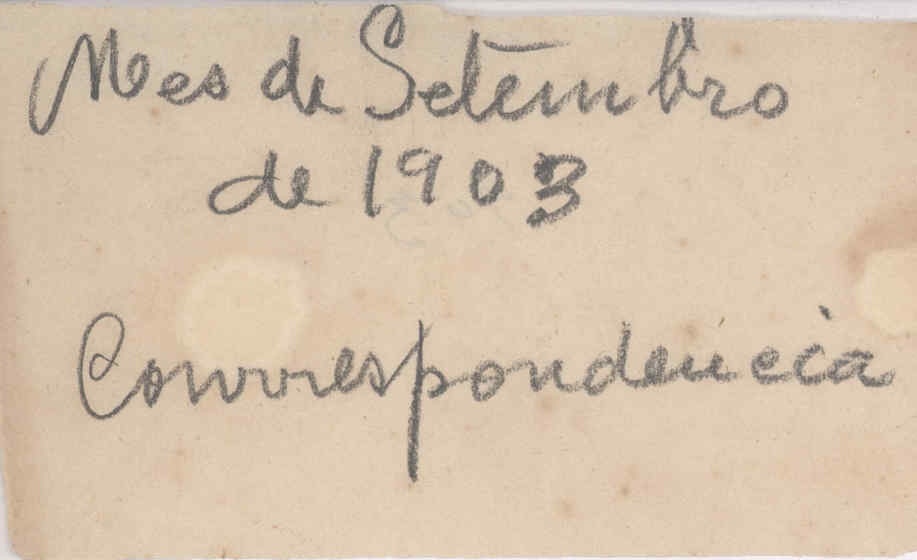 Mes de Setembro
de 1903
Correspondencia